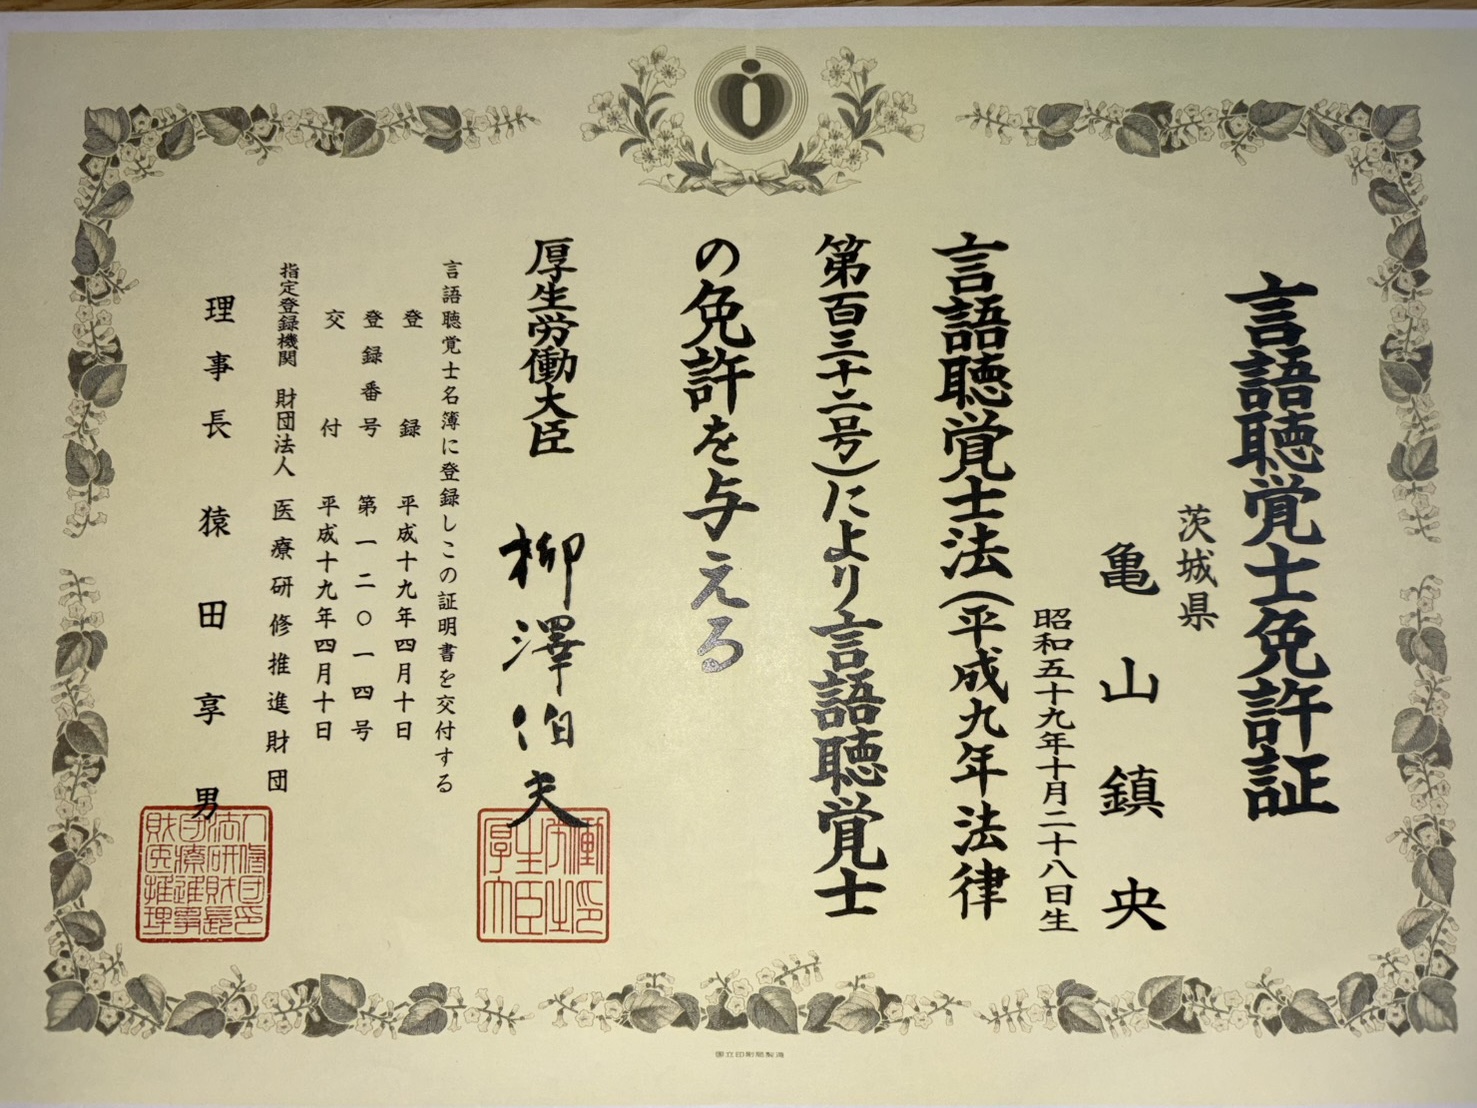 言語聴覚士免許証
茨城県
亀山鎮央
昭和五十九年十月二十八日生
言語聴覚士法(平成九年法律
第百三十二号)により言語聴覚士
の免許を与える
厚生労働大臣 柳澤伯夫
言語聴覚士名簿に登録しこの証明書を交付する
登録 平成十九年四月十日
登録番号 第一二〇一四号
交付 平成十九年四月十日
指定登録機関 財団法人 医療研修推進財団
理事長 猿田享男
国立印刷局製造